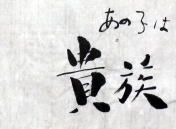 あの子は
貴族